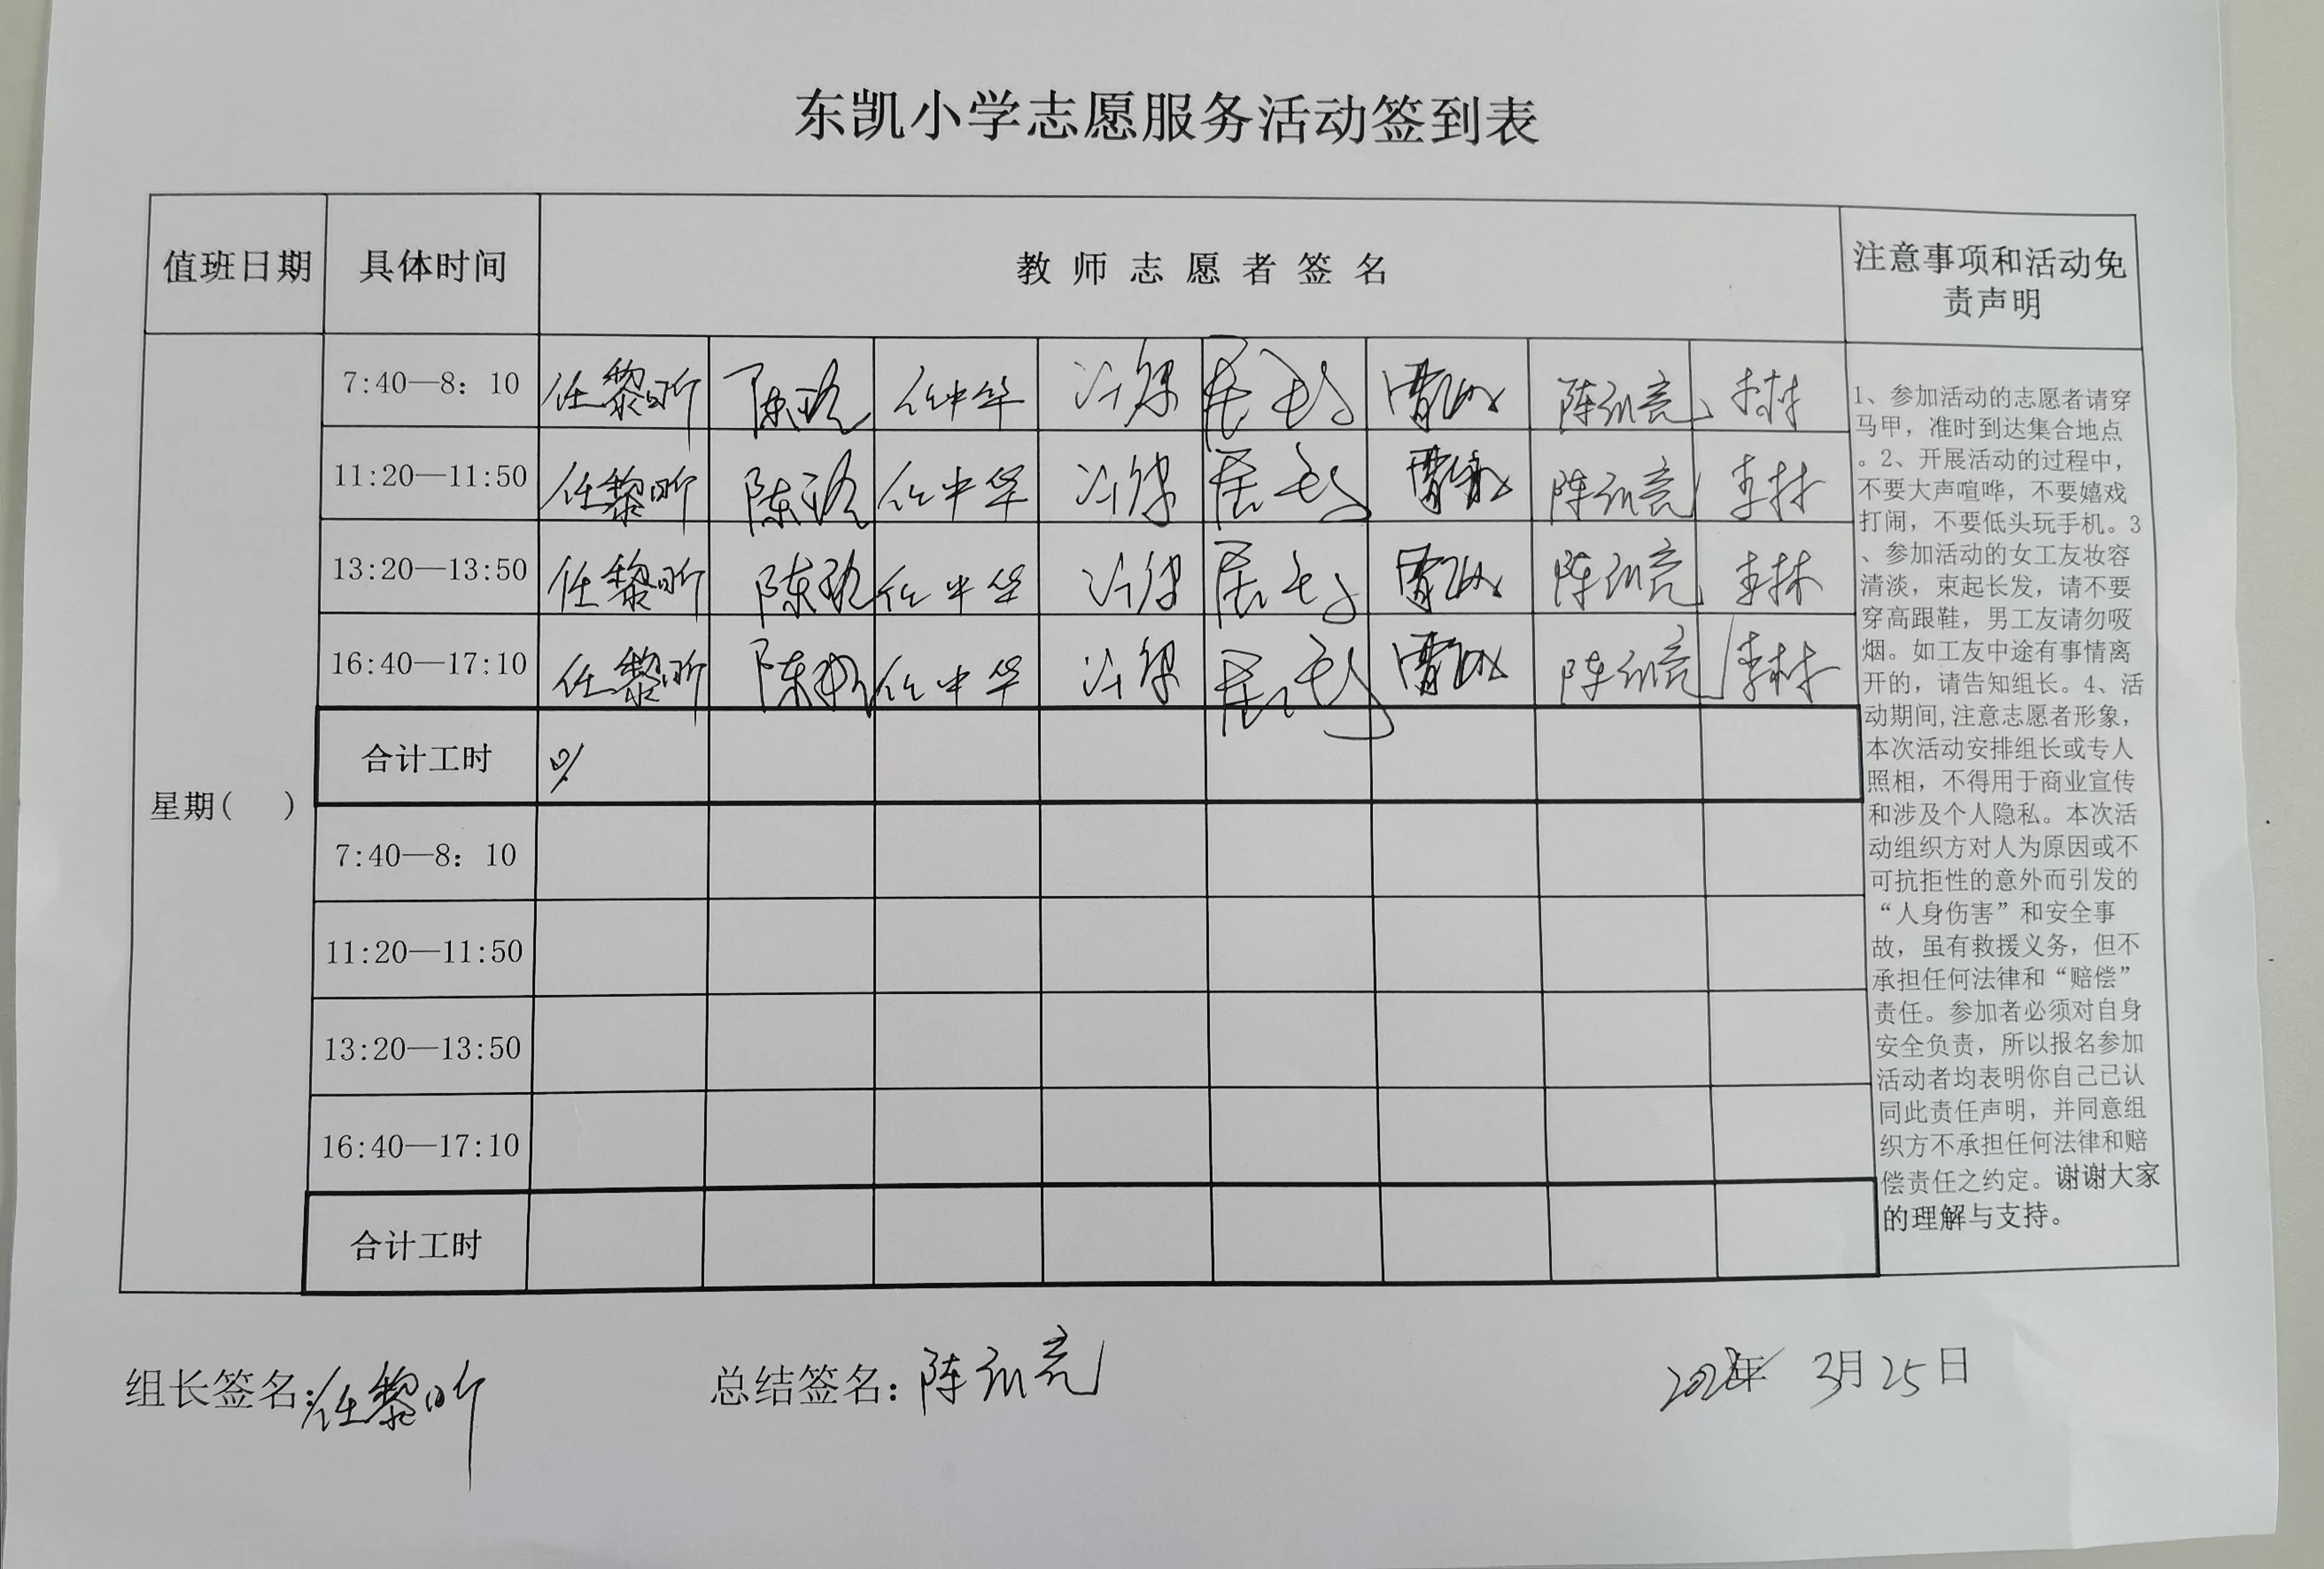 东凯小学志愿服务活动签到表
值班日期 具体时间 教师志愿者签名 注意事项和活动免
责声明
7:40—8：10 任黎昕 陈 任中华 陈训亮 李林
11:20—11:50 任黎昕 陈 任中华 陈训亮 李林
13:20—13:50 任黎昕 陈 任中华 陈训亮 李林
16:40—17:10 任黎昕 陈 任中华 陈训亮 李林
合计工时
星期( )
7:40—8：10
11:20—11:50
13:20—13:50
16:40—17:10
合计工时
1、参加活动的志愿者请穿
马甲，准时到达集合地点
。2、开展活动的过程中，
不要大声喧哗，不要嬉戏
打闹，不要低头玩手机。3
、参加活动的女工友妆容
清淡，束起长发，请不要
穿高跟鞋，男工友请勿吸
烟。如工友中途有事情离
开的，请告知组长。4、活
动期间,注意志愿者形象，
本次活动安排组长或专人
照相，不得用于商业宣传
和涉及个人隐私。本次活
动组织方对人为原因或不
可抗拒性的意外而引发的
“人身伤害”和安全事
故，虽有救援义务，但不
承担任何法律和“赔偿”
责任。参加者必须对自身
安全负责，所以报名参加
活动者均表明你自己已认
同此责任声明，并同意组
织方不承担任何法律和赔
偿责任之约定。谢谢大家
的理解与支持。
组长签名：任黎昕 总结签名：陈训亮 年 3月25日